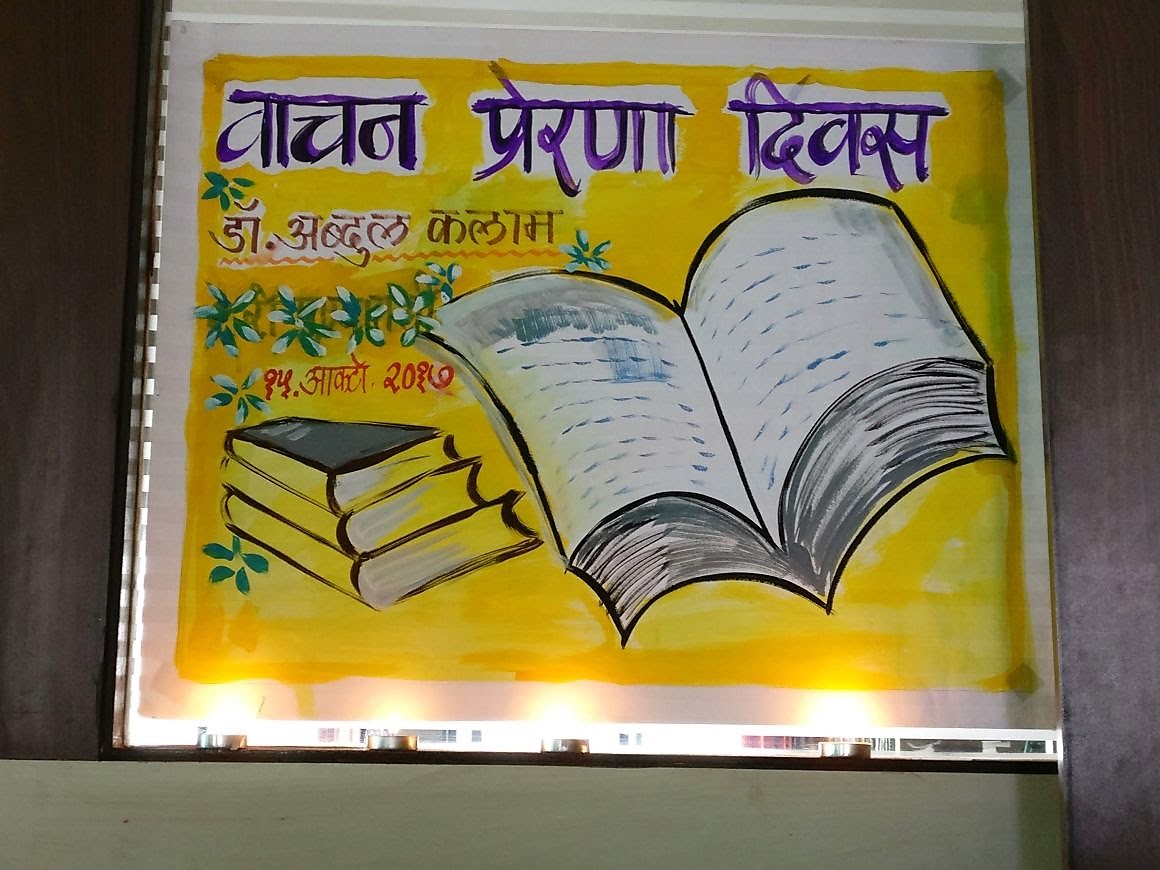 वाचन प्रेरणा दिवस
डॉ. अब्दुल कलाम
१५. आक्टो. २०१७